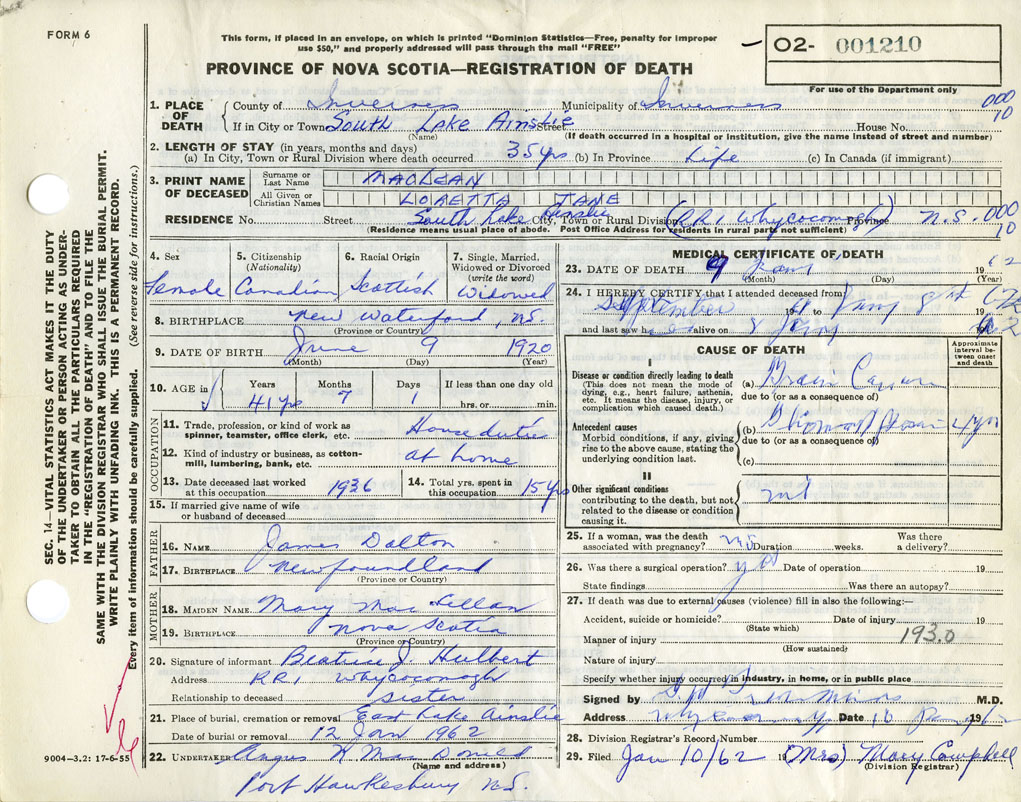 FORM 6
This form, if placed in an envelope, on which is printed "Dominion Statistics—Free, penalty for improper
use $50," and properly addressed will pass through the mail "FREE"
PROVINCE OF NOVA SCOTIA—REGISTRATION OF DEATH
02- 001210
For use of the Department only
1. PLACE OF DEATH County of Inverness Municipality of Inverness 000
If in City or Town South Lake Ainslie Street House No. 10
(Name) (If death occurred in a hospital or institution, give the name instead of street and number)
2. LENGTH OF STAY (in years, months and days)
(a) In City, Town or Rural Division where death occurred 35 yrs (b) In Province Life (c) In Canada (if immigrant)
3. PRINT NAME OF DECEASED Surname or Last Name MACLEAN
All Given or Christian Names LORETTA JANE
RESIDENCE No. Street South Lake Ainslie City, Town or Rural Division (R.R.1 Whycocomagh) Province N.S. 000
(Residence means usual place of abode. Post Office Address for residents in rural parts not sufficient) 10
4. Sex Female
5. Citizenship (Nationality) Canadian
6. Racial Origin Scottish
7. Single, Married, Widowed or Divorced (write the word) Widowed
8. BIRTHPLACE New Waterford, N.S.
(Province or Country)
9. DATE OF BIRTH June 9 1920
(Month) (Day) (Year)
10. AGE in Years Months Days If less than one day old
41 yrs 7 1 hrs. or min.
OCCUPATION
11. Trade, profession, or kind of work as spinner, teamster, office clerk, etc. House duties
12. Kind of industry or business, as cotton-mill, lumbering, bank, etc. at home
13. Date deceased last worked at this occupation 1936
14. Total yrs. spent in this occupation 15 yrs
15. If married give name of wife or husband of deceased
FATHER
16. NAME James Dalton
17. BIRTHPLACE Newfoundland
(Province or Country)
MOTHER
18. MAIDEN NAME Mary MacLellan
19. BIRTHPLACE Nova Scotia
(Province or Country)
20. Signature of informant Beatrice J. Hulbert
Address R.R.1 Whycocomagh
Relationship to deceased Sister
21. Place of burial, cremation or removal East Lake Ainslie
Date of burial or removal 12 Jan 1962
22. UNDERTAKER Angus MacDonald
(Name and address)
Port Hawkesbury N.S.
MEDICAL CERTIFICATE OF DEATH
23. DATE OF DEATH 9 Jany 19 62
(Month) (Day) (Year)
24. I HEREBY CERTIFY that I attended deceased from
September 19 to Jany 19
and last saw h alive on 8 Jany
CAUSE OF DEATH
Approximate interval between onset and death
I
Disease or condition directly leading to death
(This does not mean the mode of dying, e.g., heart failure, asthenia, etc. It means the disease, injury, or complication which caused death.)
(a) Brain
due to (or as a consequence of)
Antecedent causes
Morbid conditions, if any, giving rise to the above cause, stating the underlying condition last.
(b)
due to (or as a consequence of)
(c)
II
Other significant conditions
contributing to the death, but not related to the disease or condition causing it.
25. If a woman, was the death associated with pregnancy? no Duration weeks. Was there a delivery?
26. Was there a surgical operation? yes Date of operation 19
State findings Was there an autopsy?
27. If death was due to external causes (violence) fill in also the following:—
Accident, suicide or homicide? Date of injury 19
(State which)
Manner of injury 193.0
(How sustained)
Nature of injury
Specify whether injury occurred in industry, in home, or in public place
Signed by M.D.
Address Date 10 Jan 1962
28. Division Registrar's Record Number
29. Filed Jan 10/62 19 (Mrs) Mary Campbell
(Division Registrar)
SEC. 14—VITAL STATISTICS ACT MAKES IT THE DUTY
OF THE UNDERTAKER OR PERSON ACTING AS UNDER-
TAKER TO OBTAIN ALL THE PARTICULARS REQUIRED
IN THE "REGISTRATION OF DEATH" AND TO FILE THE
SAME WITH THE DIVISION REGISTRAR WHO SHALL ISSUE THE BURIAL PERMIT.
WRITE PLAINLY WITH UNFADING INK. THIS IS A PERMANENT RECORD.
Every item of information should be carefully supplied. (See reverse side for instructions.)
9004-3.2: 17-6-55